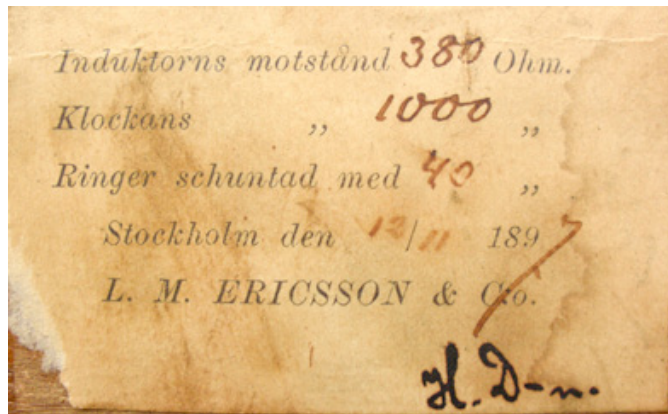 Induktorns motstånd 380 Ohm.
Klockans „ 1000 „
Ringer schuntad med 40 „
Stockholm den 12/11 1897
L. M. ERICSSON & C:o.
H. D-n.